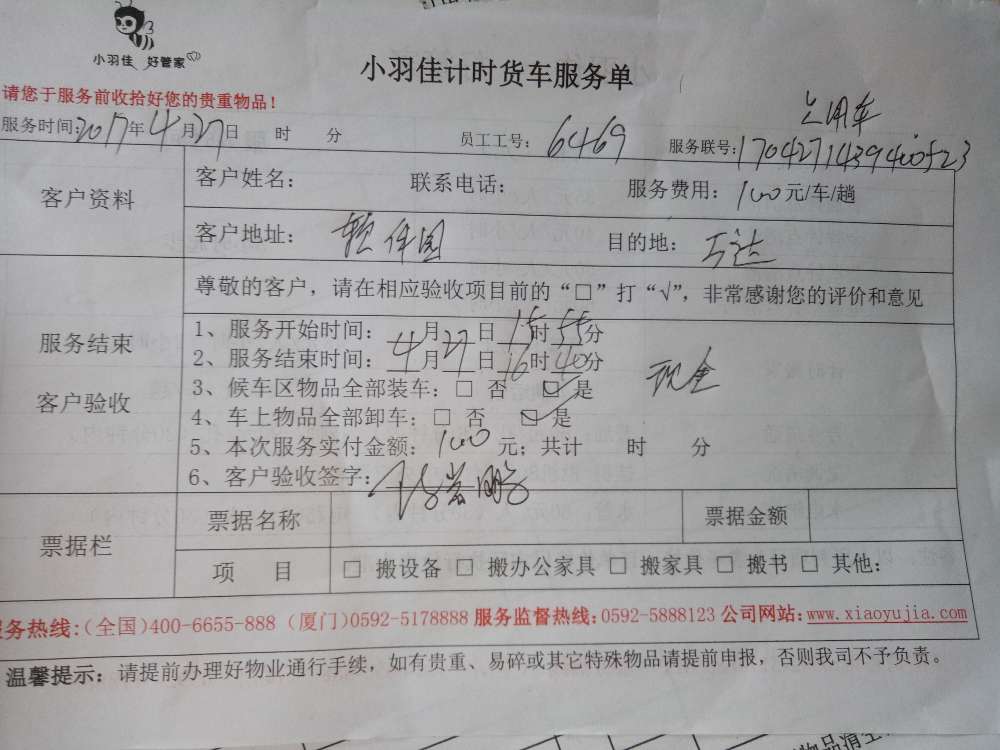 小羽佳 好管家
小羽佳计时货车服务单
请您于服务前收拾好您的贵重物品!
服务时间:2017年4月27日 时 分 员工工号: 6469 服务联号:
客户资料
客户姓名: 联系电话: 服务费用: 100元/车/趟
客户地址: 软件园 目的地:
尊敬的客户，请在相应验收项目前的“□”打“√”，非常感谢您的评价和意见
服务结束
客户验收
1、服务开始时间: 4月27日15时55分
2、服务结束时间: 4月27日16时40分
现金
3、候车区物品全部装车: □ 否 ☑ 是
4、车上物品全部卸车: □ 否 ☑ 是
5、本次服务实付金额: 100 元; 共计 时 分
6、客户验收签字:
票据栏
票据名称 票据金额
项 目 □ 搬设备 □ 搬办公家具 □ 搬家具 □ 搬书 □ 其他:
务热线:(全国)400-6655-888 (厦门)0592-5178888 服务监督热线:0592-5888123 公司网站:www.xiaoyujia.com
温馨提示: 请提前办理好物业通行手续，如有贵重、易碎或其它特殊物品请提前申报，否则我司不予负责。